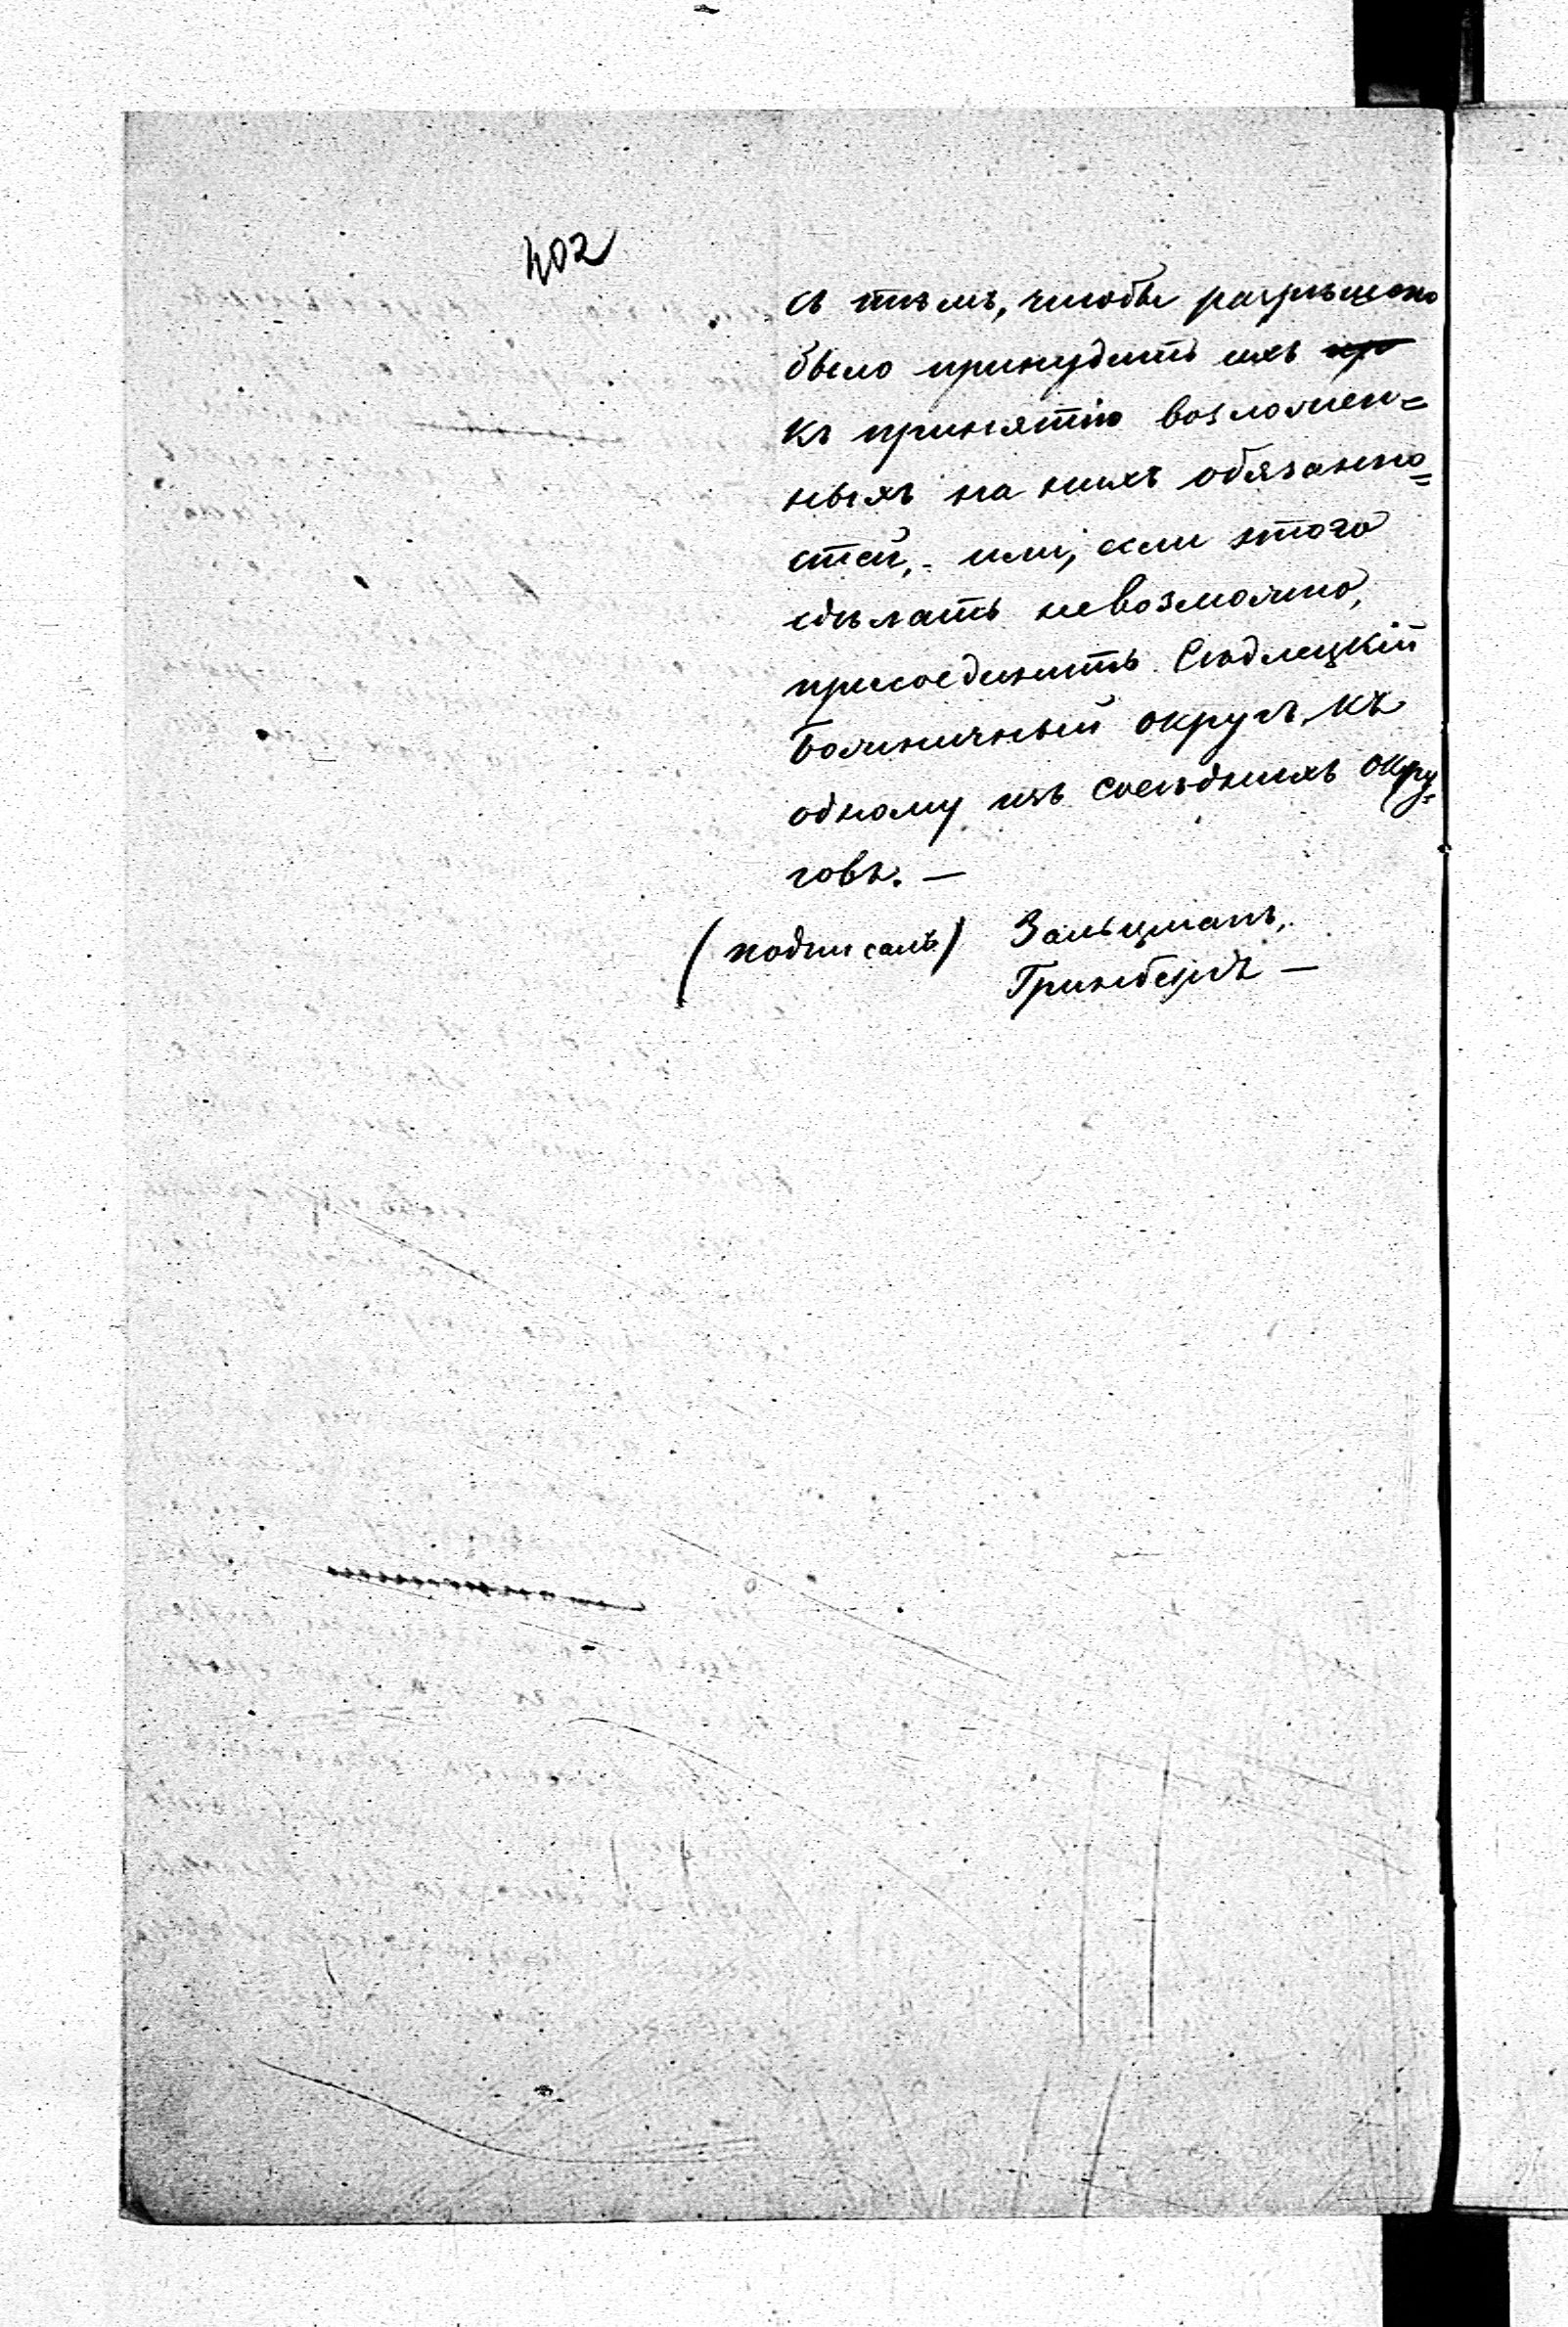 402
съ тѣмъ, чтобы разрѣшено
было принудить ихъ
къ принятію возложен=
ныхъ на нихъ обязанно=
стей, - или, если этого
сдѣлать невозможно,
присоединить Сѣдлецкій
Божничный округъ къ
одному изъ сосѣднихъ окру=
говъ. —
(подписалъ) Зальцманъ,
Гринбергъ —